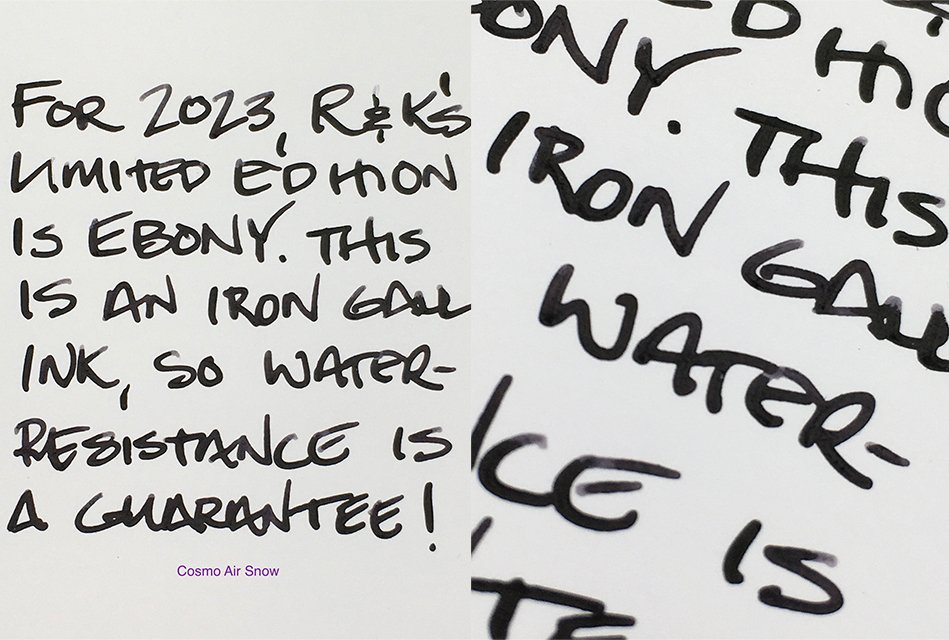 FOR 2023, R&K'S
LIMITED EDITION
IS EBONY. THIS
IS AN IRON GALL
INK, SO WATER-
RESISTANCE IS
A GUARANTEE!
Cosmo Air Snow
ONY. THIS
IRON GALL
WATER-
CE IS